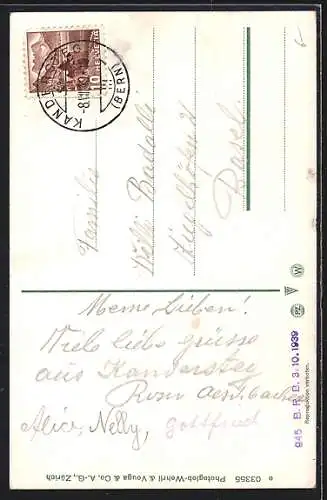 KANDERSTEG
(BERN)
-8.VIII.
HELVETIA
10
Familie
Willi
Basel
Meine Lieben!
Viele liebe grüsse
aus Kandersteg
Rosa
Alice, Nelly, gottfried
945 B.R.B. 3.10.1939
Reproduktion verboten.
W
03355 Photoglob-Wehrli & Vouga & Co. A.-G., Zürich